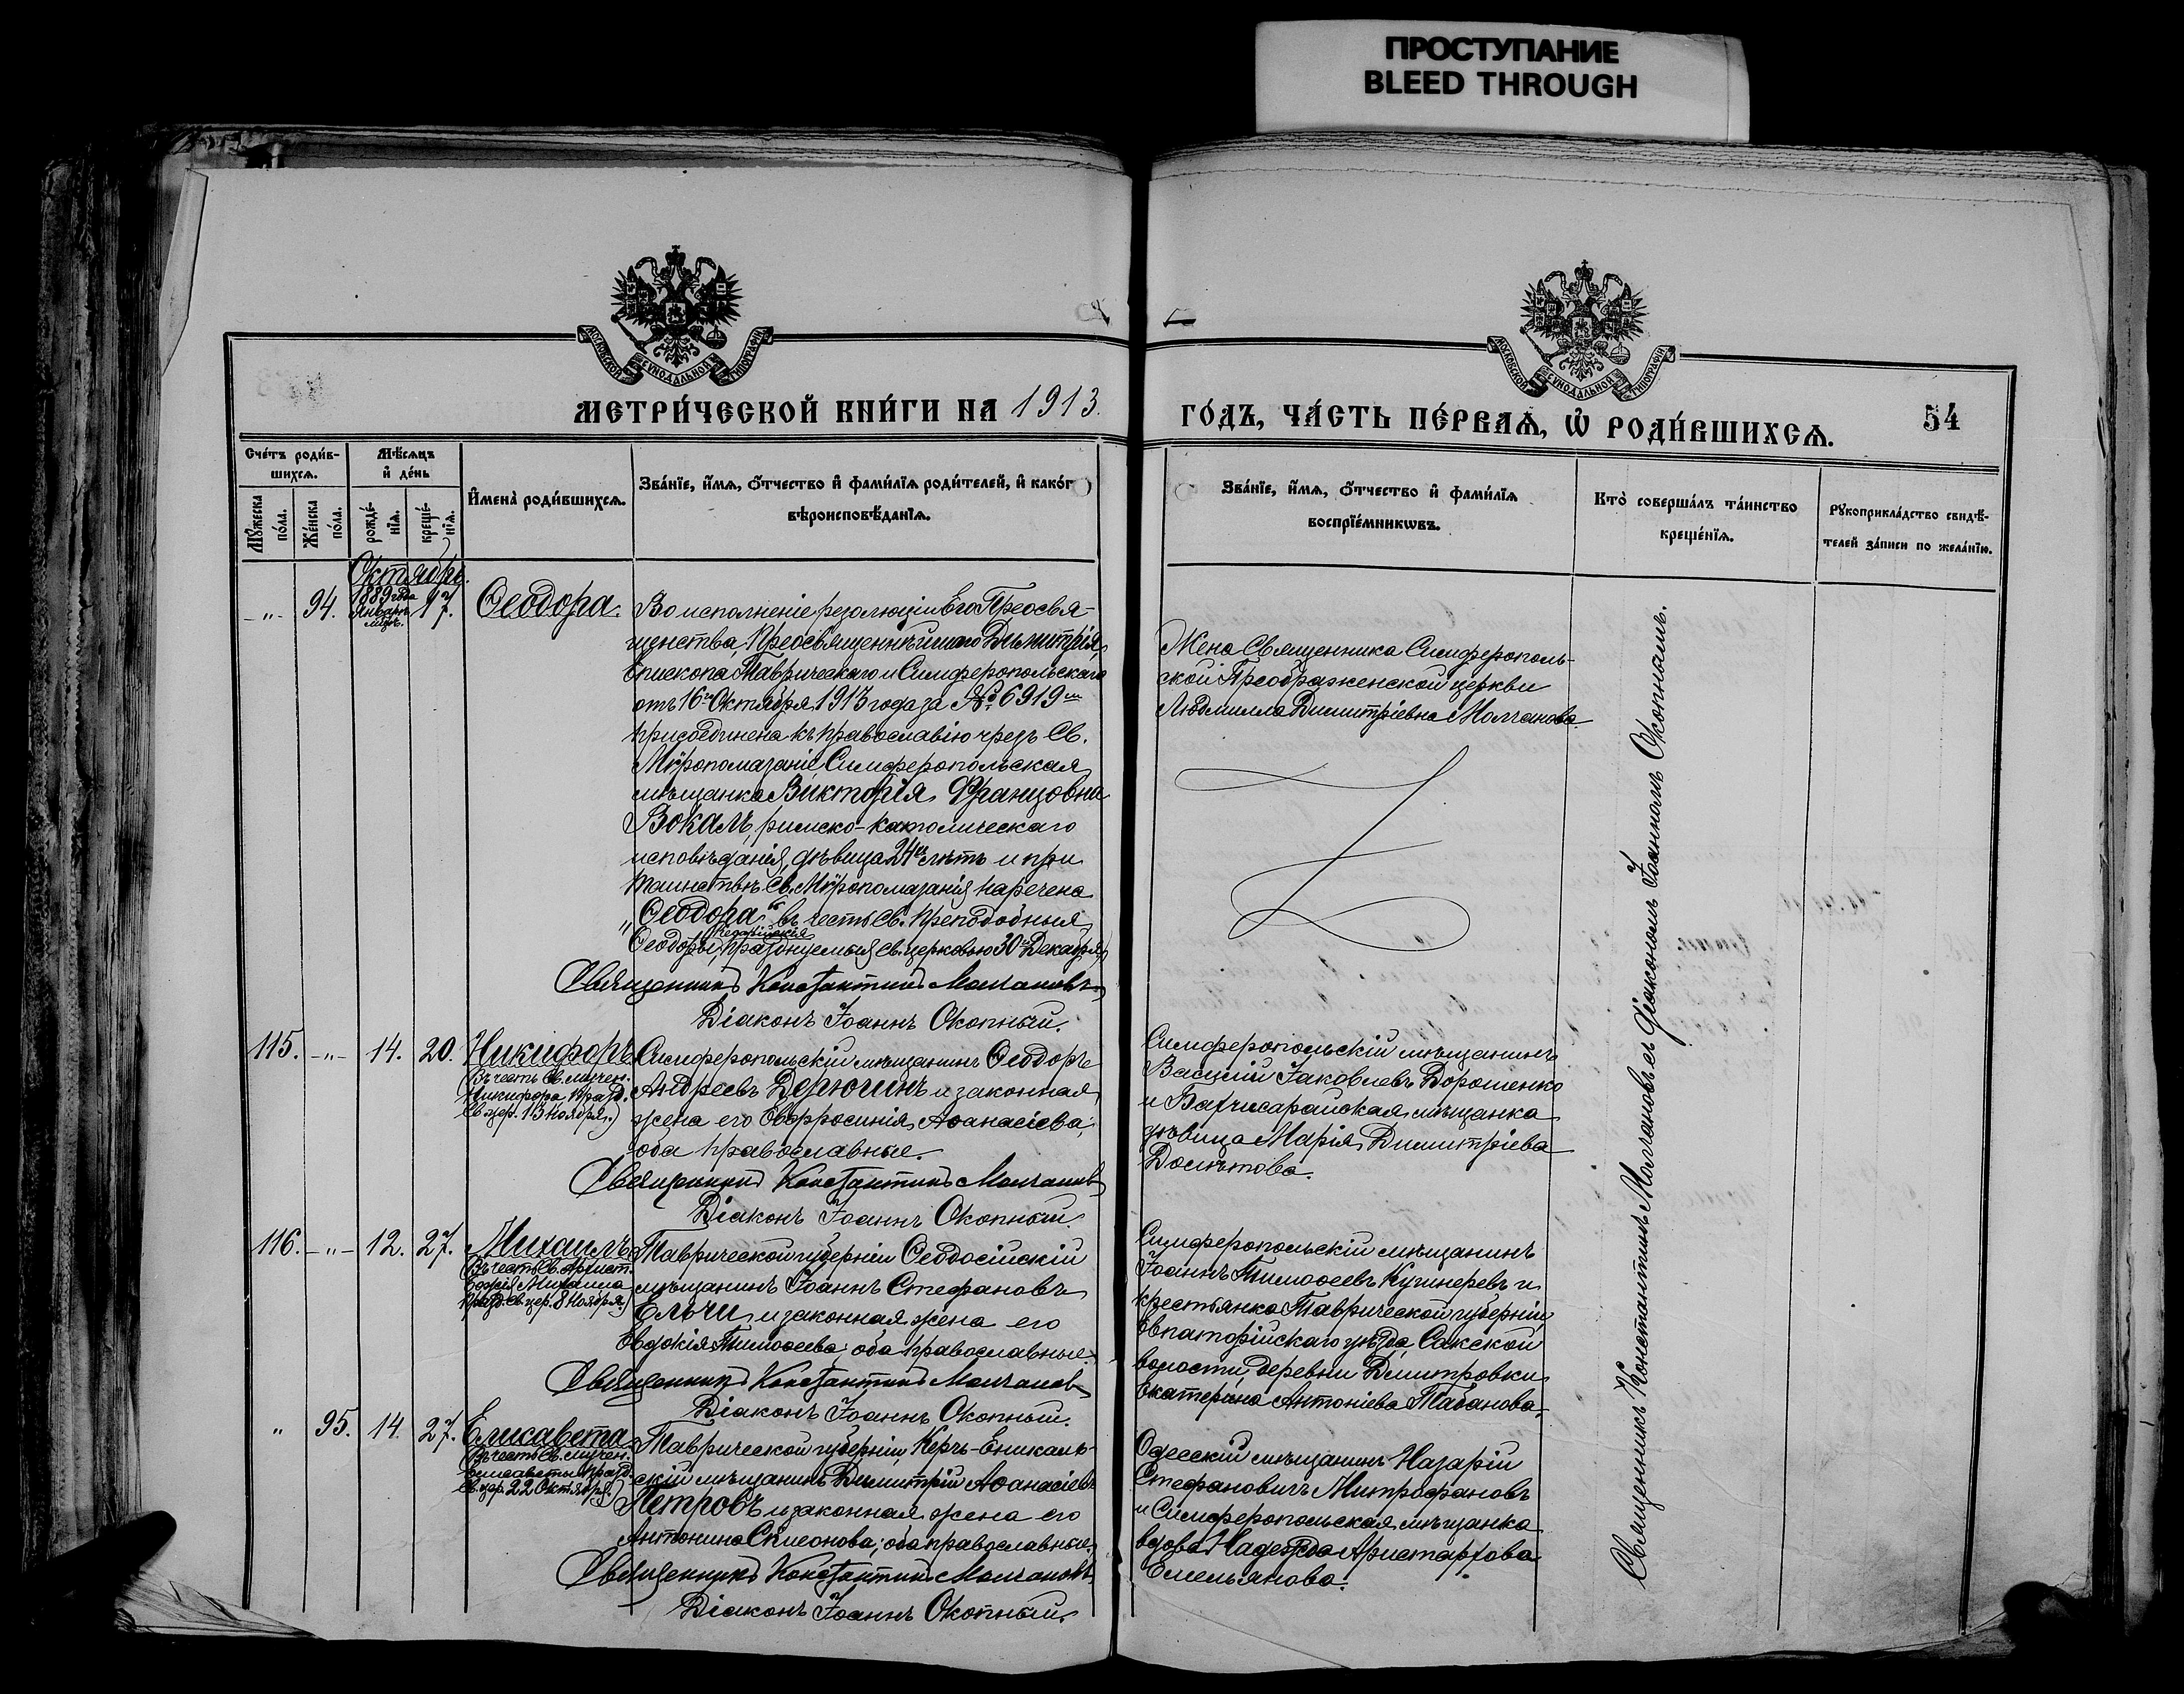 ПРОСТУПАНИЕ
BLEED THROUGH
МОСКОВСКОЙ СѴНОДАЛЬНОЙ ТИПОГРАФІИ
МОСКОВСКОЙ СѴНОДАЛЬНОЙ ТИПОГРАФІИ
МЕТРИ́ЧЕСКОЙ КНИ́ГИ НА 1913.
ГО́ДЪ, ЧА́СТЬ ПЕ́РВАѦ, Ѡ҆ РОДИ́ВШИХСѦ.
54
Сче́тъ роди́в-
шихсѧ.
Мꙋ́жеска по́ла.
Же́нска по́ла.
Мѣ́сѧцъ
и҆ де́нь
рожде́-
нїѧ.
креще́-
нїѧ.
И҆мена̀ роди́вшихсѧ.
Зва́нїе, и҆́мѧ, ѻ҆́тчество и҆ фами́лїѧ роди́телей, и҆ како́г
вѣроисповѣ́данїѧ.
Зва́нїе, и҆́мѧ, ѻ҆́тчество и҆ фами́лїѧ
воспрїе́мникѡвъ.
Кто̀ соверша́лъ та́инство
креще́нїѧ.
Рꙋкоприкла́дство свидѣ́-
телей за́писи по жела́нїю.
Октябрь.
-„- 94. 1889 года Январь мцъ. 17. Ѳеодора.
Во исполненіе резолюціи Его Преосвя-
щенства, Преосвященнѣйшаго Димитрія,
Епископа Таврическаго и Симферопольскаго
отъ 16го Октября 1913 года за № 6919м
присоединена къ православію чрезъ Св.
Мѵропомазаніе, Симферопольская
мѣщанка Викторія Францовна
Вокалъ, римско-католическаго
исповѣданія, дѣвица 24хъ лѣтъ и при
таинствѣ Св. Мѵропомазанія наречена
„Ѳеодора“ въ честь Св. Преподобныя
Ѳеодоры, празднуемыя св. церковью 30го Декабря
Священникъ Константинъ Молчановъ.
Діаконъ Іоаннъ Окопный.
Жена Священника Симферополь-
ской Преображенской церкви
Людмилла Димитріевна Молчанова
115. -„- 14. 20. Никифоръ
Въ честь Св. мучен.
Никифора, празд.
Св. цер. 13 Ноября.)
Симферопольскій мѣщанинъ Ѳеодоръ
Андреевъ Дерюгинъ и законная
жена его Евфросинія Аѳанасіева,
оба православные.
Священникъ Константинъ Молчановъ
Діаконъ Іоаннъ Окопный.
Симферопольскій мѣщанинъ
Василій Іаковлевъ Дорошенко
и Бахчисарайская мѣщанка
дѣвица Марія Димитріева
116. -„- 12. 27. Михаилъ
Въ честь Св. Архист.
Божія Михаила
празд. Св. цер. 8 Ноября.)
Таврической губерніи Ѳеодосійскій
мѣщанинъ Іоаннъ Стефановъ
Ельчи и законная жена его
Евдокія Тимоѳеева; оба православные.
Священникъ Константинъ Молчановъ
Діаконъ Іоаннъ Окопный.
Симферопольскій мѣщанинъ
Іоаннъ Тимоѳеевъ Кушнеревъ и
крестьянка Таврической губерніи,
Евпаторійскаго уѣзда, Сакской
волости, деревни Дмитровки
Екатерина Антоніева Табанова.
„ 95. 14. 27. Елисавета
Въ честь Св. мучен.
Елисаветы празд.
Св. цер. 22 Октября.)
Таврической губерніи, Керчь-Еникаль-
скій мѣщанинъ Димитрій Аѳанасіевъ
Петровъ и законная жена его
Антонина Симеонова; оба православные.
Священникъ Константинъ Молчановъ
Діаконъ Іоаннъ Окопный.
Одесскій мѣщанинъ Назарій
Стефановичъ Митрофановъ
и Симферопольская мѣщанка
вдова Надежда Аристархова
Емельянова.
Священникъ Константинъ Молчановъ съ діакономъ Іоанномъ Окопнымъ.